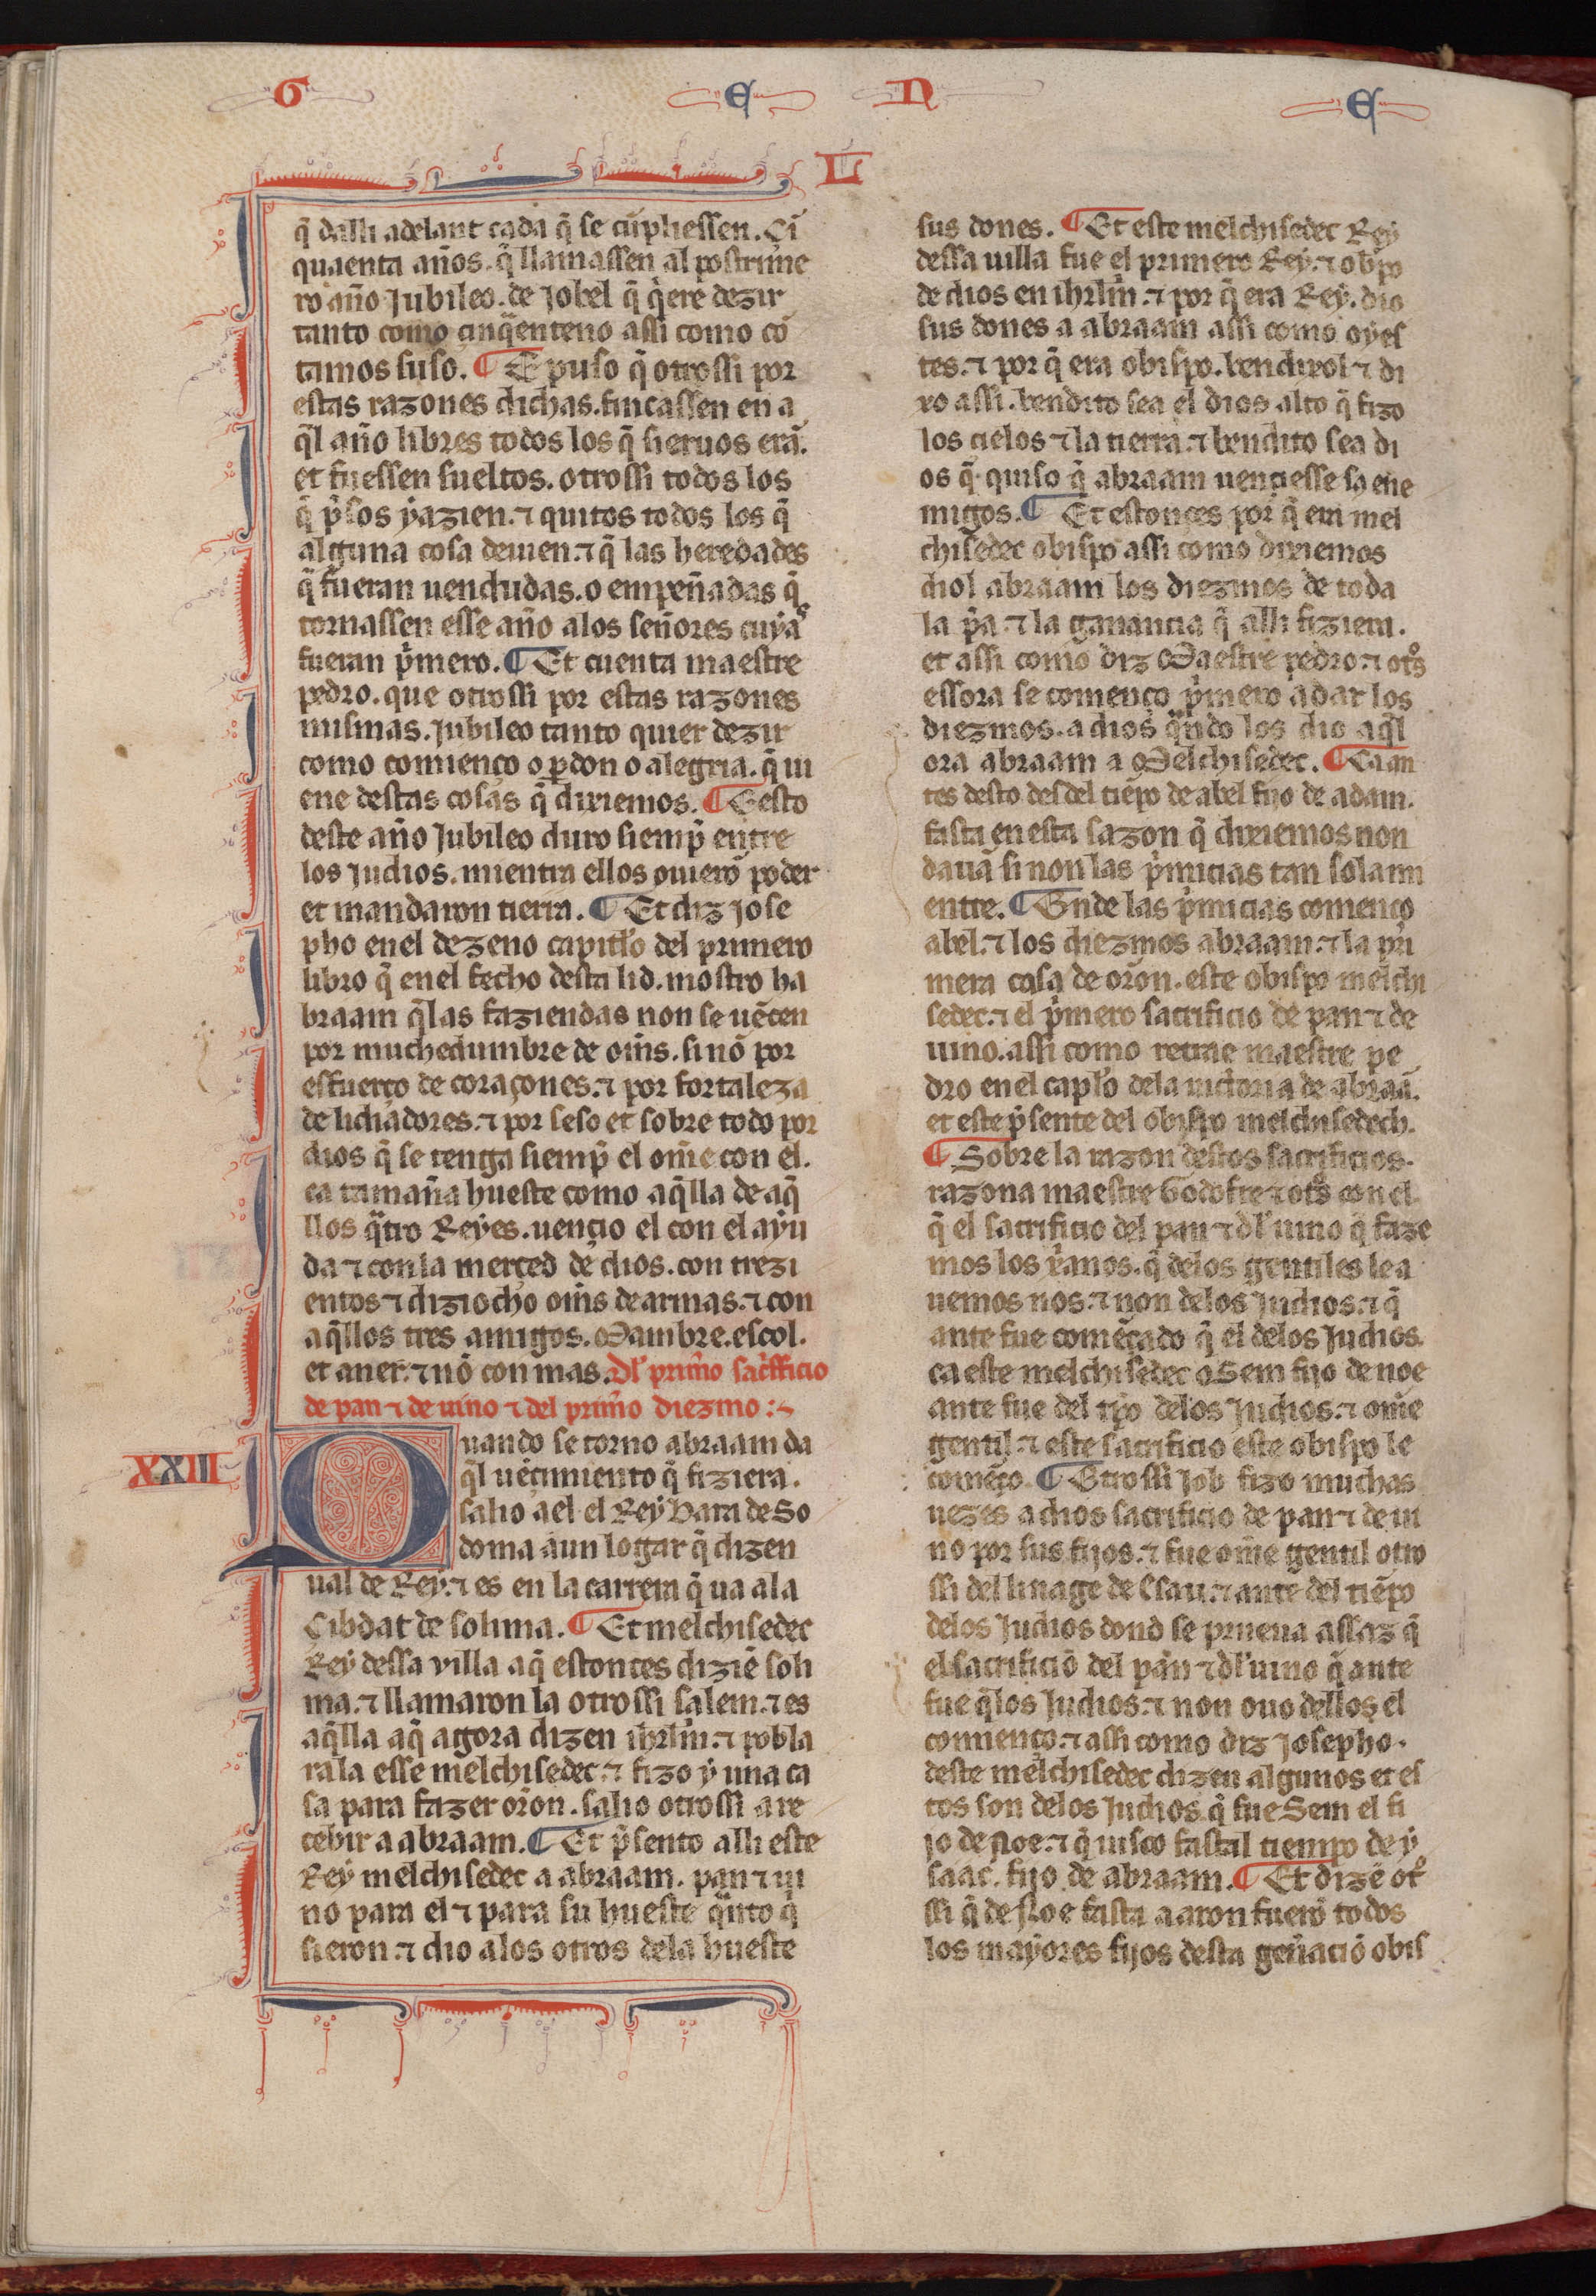 G E N E
L
q̃ dalli adelant cada q̃ se cũpliessen. Çi
quaenta años. q̃ llamassen al postrime
ro año Jubileo. de Jobel q̃ q̃ere dezir
tanto como çinq̃enteno assi como cõ
tamos suso. ¶ E puso q̃ otrossi por
estas razones dichas. fincassen en a
q̃l año libres todos los q̃ sieruos erã.
et fuessen sueltos. otrossi todos los
q̃ p̃sos ẏazien. ⁊ quitos todos los q̃
alguna cosa deuien. ⁊ q̃ las heredades
q̃ fueran uendudas. o empeñadas q̃
tornassen esse año alos señores cuẏaˢ
fueran p̃mero. ¶ Et cuenta maestre
pedro. que otrossi por estas razones
mismas. Jubileo tanto quier dezir
como comienço o ꝑdon o alegria. q̃ ui
ene destas cosas q̃ dixiemos. ¶ E esto
deste año Jubileo duro siemp̃ entre
los Judios. mientra ellos ouierõ poder
et mandaron tierra. ¶ Et diz Jose
pho enel dezeno capitl̃o del primero
libro q̃ enel fecho desta lid. mostro ha
braam q̃las faziendas non se uẽcen
por muchedumbre de om̃s. si nõ por
esfuerço de coraçones. ⁊ por fortaleza
de lidiadores. ⁊ por seso et sobre todo por
dios q̃ se tenga siemp̃ el om̃e con el.
ca tamaña hueste como aq̃lla de aq̃
llos q̃tro Reẏes. uençio el con el aẏu
da ⁊ conla merçed de dios. con trezi
entos ⁊ diziocho om̃s de armas. ⁊ con
aq̃llos tres amigos. Mambre. escol.
et aner. ⁊ nõ con mas. Dl̃ prim̃o sac̃fficio
de pan ⁊ de uino ⁊ del prim̃o diezmo :~
XXIII
Quando se torno abraam da
q̃l uẽcimiento q̃ fiziera.
salio ael el Reẏ Bara de So
doma aun logar q̃ dizen
ual de Reẏ. ⁊ es en la carrera q̃ ua ala
Çibdat de solima. ¶ Et melchisedec
Reẏ dessa villa aq̃ estonces diziẽ soli
ma. ⁊ llamaron la otrossi salem. ⁊ es
aq̃lla aq̃ agora dizen ihrlm̃. ⁊ pobla
rala esse melchisedec. ⁊ fizo ẏ una ca
sa para fazer orõn. salio otrossi a re
cebir a abraam. ¶ Et p̃sento alli este
Reẏ melchisedec a abraam. pan ⁊ ui
no para el ⁊ para su hueste q̃nto q̃
sieron. ⁊ dio alos otros dela hueste
sus dones. ¶ Et este melchisedec Reẏ
dessa uilla fue el primero Reẏ. ⁊ ob̃po
de dios en ihrlm̃. ⁊ por q̃ era Reẏ. dio
sus dones a abraam assi como oẏes
tes. ⁊ por q̃ era obispo. bendixol ⁊ di
xo assi. bendito sea el dios alto q̃ fizo
los cielos ⁊ la tierra. ⁊ bendito sea di
os q̃. quiso q̃ abraam uenciesse so ene
migos. ¶ Et estonces por q̃ era mel
chisedec obispo assi como dixiemos
diol abraam los diezmos de toda
la p̃a. ⁊ la ganancia q̃ alli fiziera.
et assi como diz Maestre pedro. ⁊ ot̃s
essora se començo p̃mero adar los
diezmos. a dios q̃ndo los dio aq̃l
ora abraam a Melchisedec. ¶ Ca an
tes desto desdel tiẽpo de abel fijo de adam.
fasta en esta sazon q̃ dixiemos non
dauã si non las p̃micias tan sola mi
entre. ¶ Onde las p̃micias començo
abel. ⁊ los diezmos abraam. ⁊ la pri
mera casa de orõn. este obispo melchi
sedec. ⁊ el p̃mero sacrificio de pan ⁊ de
uino. assi como retrae maestre pe
dro en el capl̃o dela uictoria de abraã.
et este p̃sente del obispo melchisedech.
¶ Sobre la razon destos sacrificios.
razona maestre Godofre ⁊ ot̃s con el.
q̃ el sacrificio del pan ⁊ dl̃ uino q̃ faze
mos los xp̃anos. q̃ delos gentiles le a
uemos nos. ⁊ non delos Judios. ⁊ q̃
ante fue comẽçado q̃ el delos Judios.
ca este melchisedec o Sem fijo de noe
ante fue del tp̃o delos Judios. ⁊ om̃e
gentil. ⁊ este sacrificio este obispo le
comẽço. ¶ Otrossi Job fizo muchas
uezes a dios sacrificio de pan ⁊ de ui
no por sus fijos. ⁊ fue om̃e gentil otro
ssi del linage de Esau. ⁊ ante del tiẽpo
delos Judios dond se prueua assaz q̃
el sacrificio del pan ⁊ dl̃ uino q̃ ante
fue q̃los Judios. ⁊ non ouo dellos el
comienço. ⁊ assi como diz Josepho.
deste melchisedec dizen algunos et es
tos son delos Judios. q̃ fue Sem el fi
jo de Noe. ⁊ q̃ uisco fastal tiempo de ẏ
saac. fijo de abraam. ¶ Et dizẽ ot̃
ssi q̃ de Noe fasta aaron fuerõ todos
los maẏores fijos desta geñaciõ obis